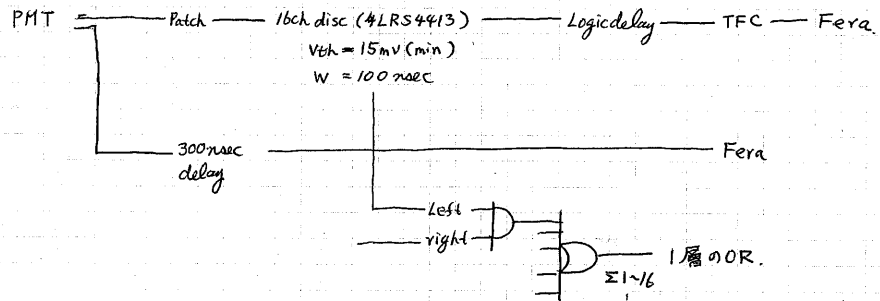 PMT Patch 16ch disc (4LRS4413) Logic delay TFC Fera.
Vth = 15mV (min)
W = 100 nsec
300 nsec Fera
delay
Left
right
1層のOR.
Σ1~16